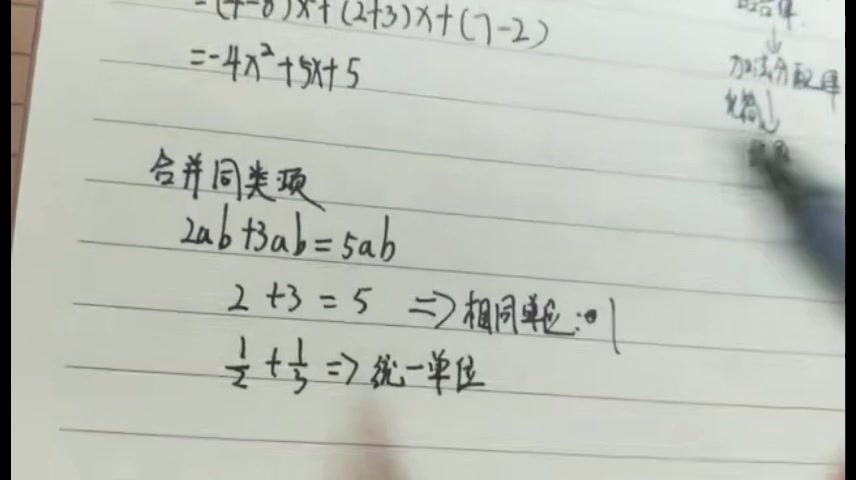 =(4-8)x+(2+3)x+(7-2)
=-4x²+5x+5
合并同类项
2ab+3ab=5ab
2+3=5 => 相同单位:1
1/2+1/3 => 统一单位
↓
加法分配律
化简↓